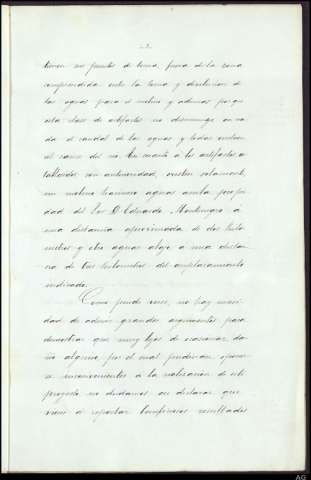 - 3 -
tienen su puente de toma, fuera de la zona
comprendida entre la toma y devolucion de
las aguas para el molino y ademas porque
esta clase de artefactos no disminuye en na-
da el caudal de las aguas y todas vuelven
al cauce del rio. En cuanto á los artefactos in-
stalados con anterioridad, existen solamente
un molino harinero aguas arriba propie-
dad del Sor. D. Eduardo Montenegro á
una distancia aproximada de dos kilo-
metros y otro aguas abajo a una distan-
cia de tres kilometros del emplazamiento
indicado.
Como puede verse, no hay necesi-
dad de aducir grandes argumentos para
demostrar que muy lejos de ocasionar da-
ño alguno, por el cual pudieran oponer-
se inconvenientes á la realización de este
proyecto, no dudamos en declarar que
viene á reportar beneficiosos resultados
AG